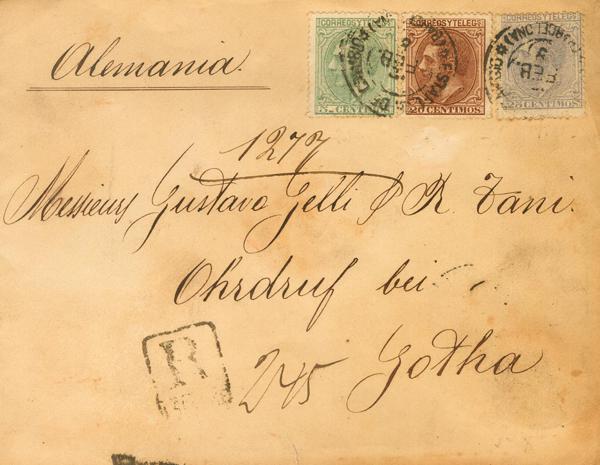 Alemania.
CORREOS Y TELEGS
5 CENTIMOS
CORREOS Y TELEGS
20 CENTIMOS
CORREOS Y TELEGS
25 CENTIMOS
1277
Messieurs Gustavo Gelli & R. Tani.
Ohrdruf bei
Gotha
R
245